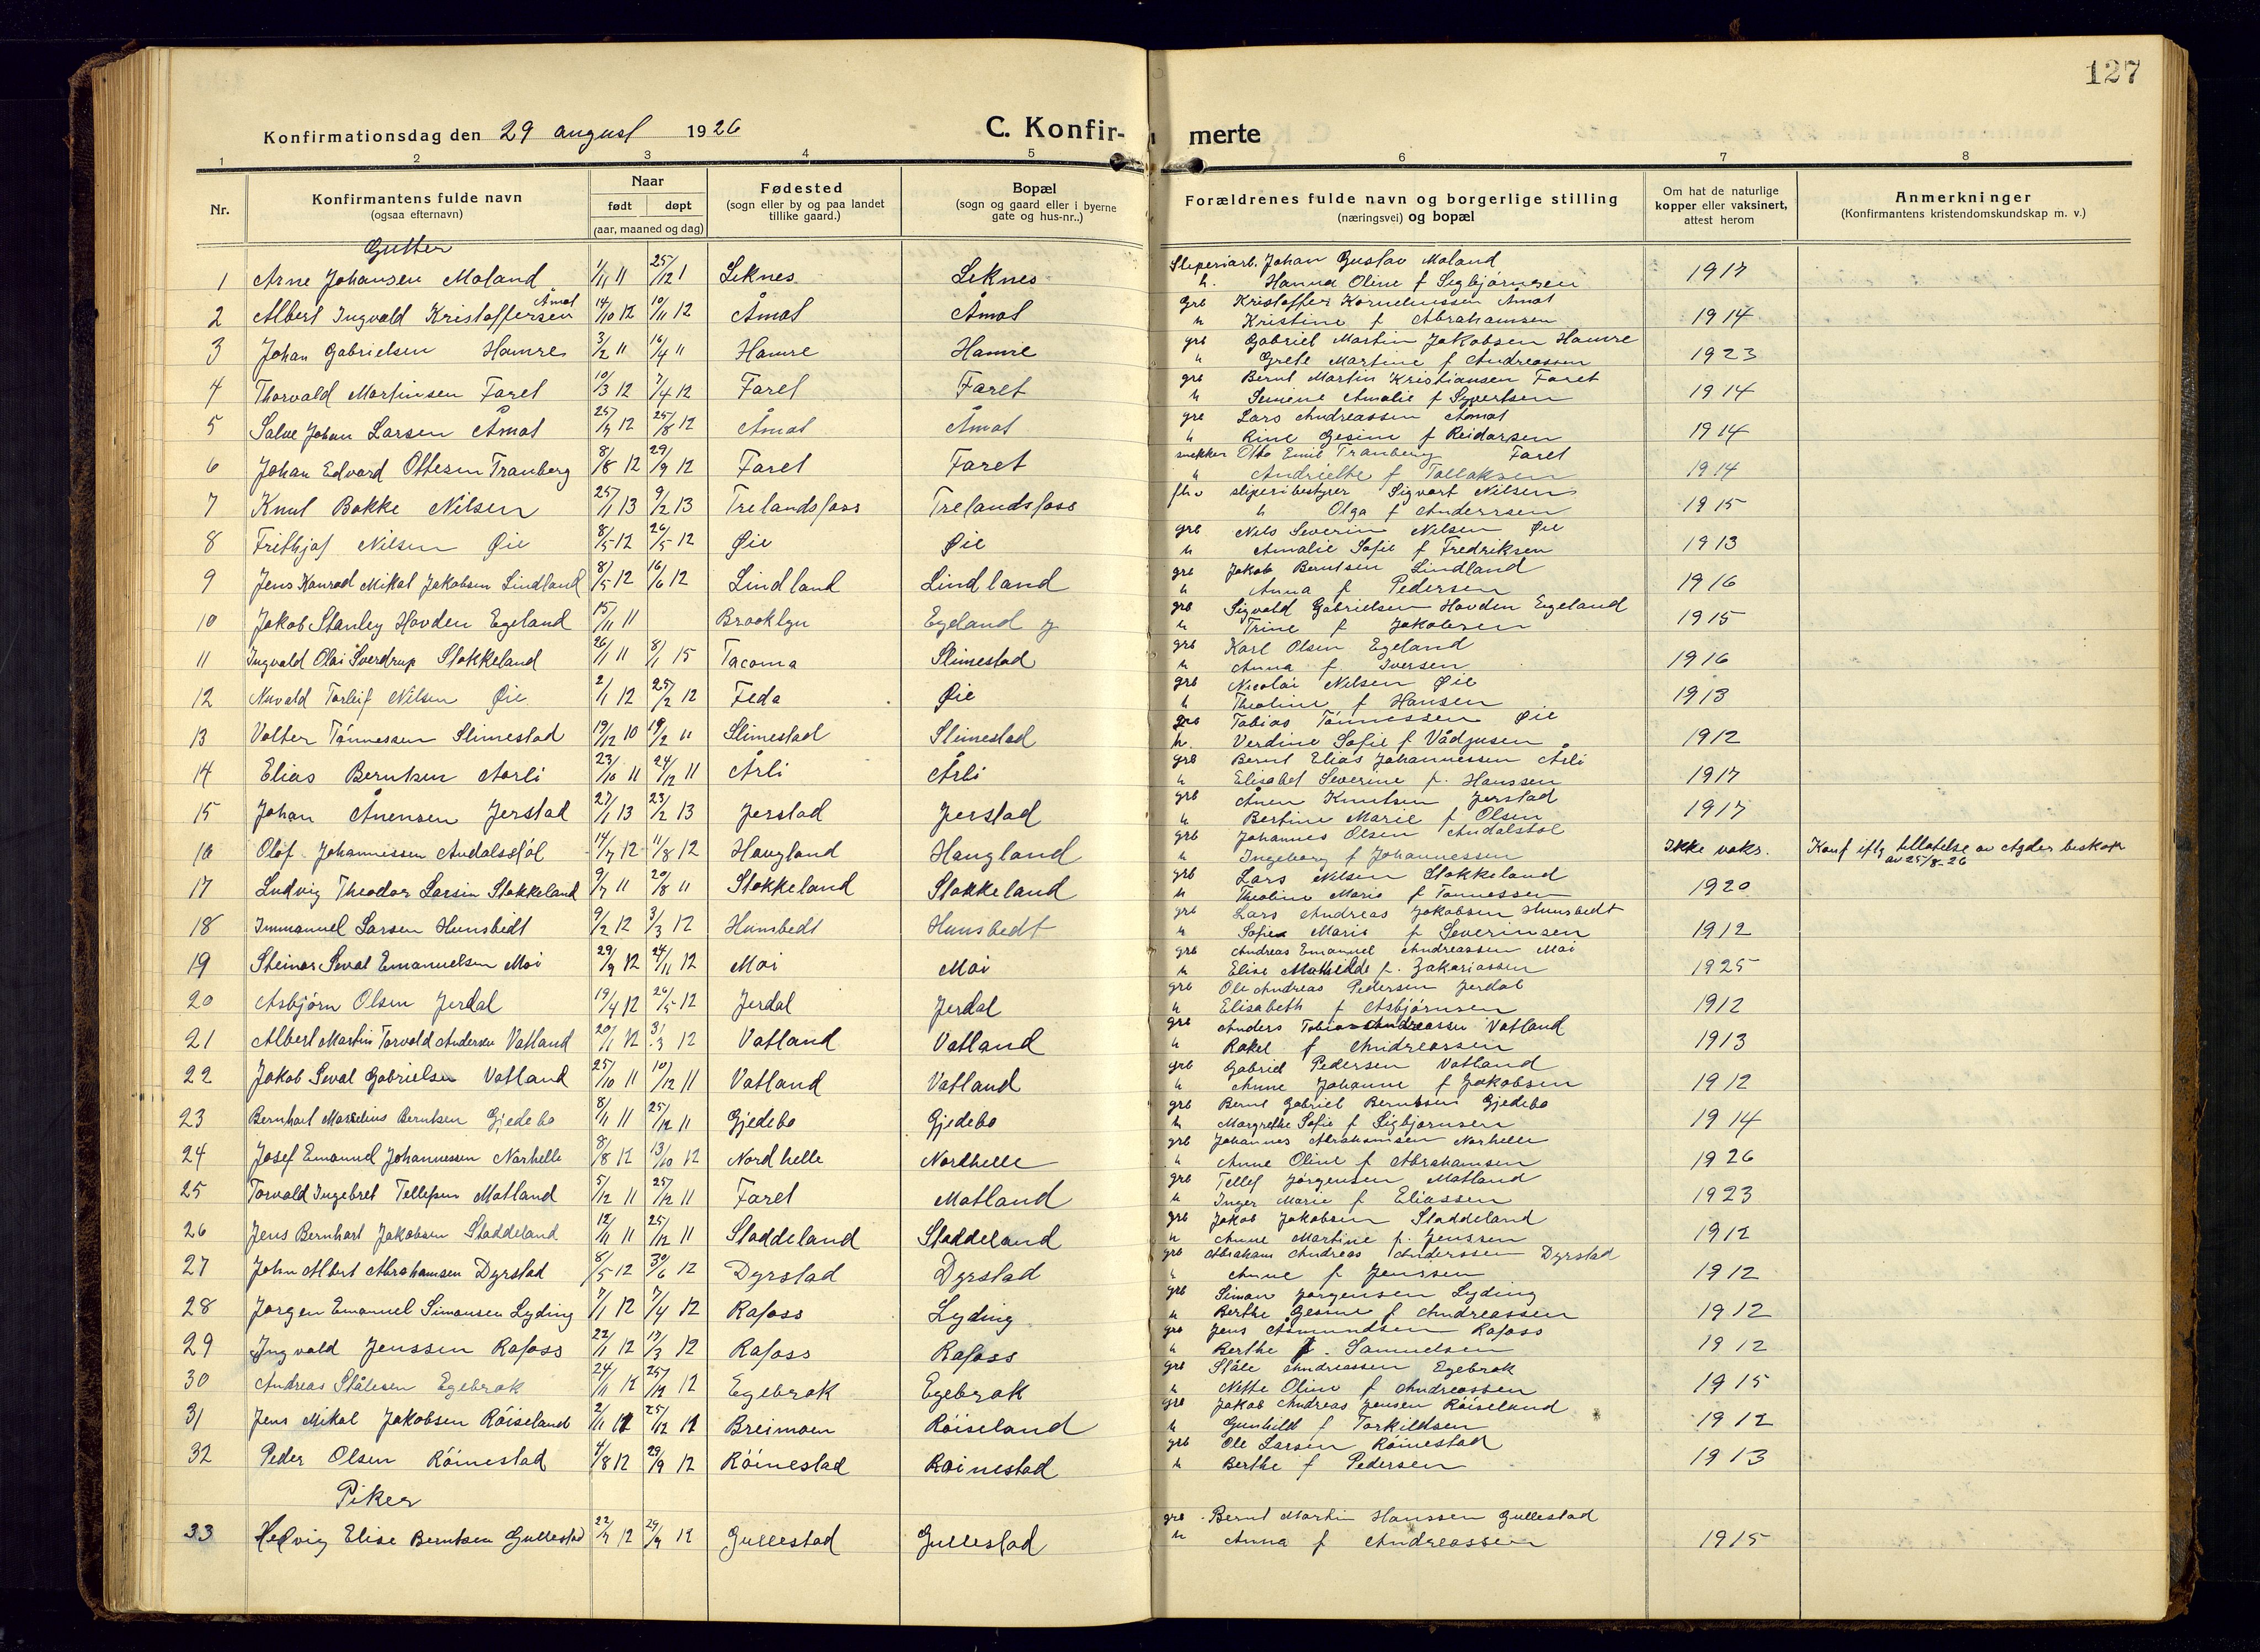 127
Konfirmationsdag den 29 august 1926 C. Konfirmerte
1 2 3 4 5 6 7 8
Nr. Konfirmantens fulde navn (ogsaa efternavn) Naar født døpt (aar, maaned og dag) Fødested (sogn eller by og paa landet tillike gaard.) Bopæl (sogn og gaard eller i byerne gate og hus-nr..) Forældrenes fulde navn og borgerlige stilling (næringsvei) og bopæl Om hat de naturlige kopper eller vaksinert, attest herom Anmerkninger (Konfirmantens kristendomskundskap m. v.)
Gutter
1 Arne Johansen Moland 1/11 11 25/12 1 Leknes Leknes Sliperiarb. Johan Gustav Moland 1917
h. Hanna Oline f Sigbjørnsen
2 Albert Ingvald Kristoffersen Åmot 14/10 12 10/11 12 Åmot Åmot grb Kristoffer Kornelinssen Åmot 1914
h Kristine f Abrahamsen
3 Johan Gabrielsen Hamre 3/2 11 16/4 11 Hamre Hamre grb Gabriel Martin Jakobsen Hamre 1923
h Grete Martine f Andreassen
4 Thorvald Martinsen Faret 10/3 12 7/4 12 Faret Faret grb Bernt Martin Kristiansen Faret 1914
h Semine Amalie f Syvertsen
5 Salve Johan Larsen Åmot 25/7 12 25/8 12 Åmot Åmot gre Lars Andreassen Åmot 1914
h Rine Gesine f Reidarsen
6 Johan Edvard Ottesen Tranberg 8/8 12 29/9 12 Faret Faret snekker Otto Emil Tranberg Faret 1914
h Andriette f Tallaksen
7 Knut Bakke Nilsen 25/1 13 9/2 13 Trelandsfoss Trelandsfoss fhv sliperibestyrer Sigvart Nilsen 1915
h Olga f Anderssen
8 Frithjof Nilsen Øie 8/5 12 26/5 12 Øie Øie grb Nils Severin Nilsen Øie 1913
h Amalie Sofie f Fredriksen
9 Jens Konrad Mikal Jakobsen Lindland 8/5 12 16/6 12 Lindland Lindland gre Jakob Berntsen Lindland 1916
h Anna f Pedersen
10 Jakob Stanley Hovden Egeland 15/11 11 Brooklyn Egeland grb Sigvald Gabrielsen Hovden Egeland 1915
h Trine f Jakobsen
11 Ingvald Olai Sverdrup Stokkeland 26/1 11 8/1 15 Tacoma Slimestad grb Karl Olsen Egeland 1916
h Anna f. Iversen
12 Norvald Torleif Nilsen Øie 2/1 12 25/2 12 Feda Øie grb Nicolai Nilsen Øie 1913
h Theoline f Hansen
13 Volter Tønnessen Slimestad 19/12 10 19/2 11 Slimestad Slimestad grb Tobias Tønnessen Øie 1912
h. Verdine Sofie f Vådjusen
14 Elias Berntsen Aarli 23/10 11 24/12 11 Årli Årli grb Bernt Elias Johannessen Årli 1917
h Elisabet Severine f. Hanssen
15 Johan Ånensen Jerstad 27/1 13 23/2 13 Jerstad Jerstad grb Ånen Knutsen Jerstad 1917
h Bertine Marie f Olsen
16 Olof Johannessen Andalsstøl 14/7 12 11/8 12 Haugland Haugland grb Johannes Olsen Andalstøl Ikke vaks. Konf iflg tillatelse av Agder biskop
h Ingeborg f Johannessen av 25/8-26
17 Ludvig Theodor Larsen Stokkeland 9/7 11 20/8 11 Stokkeland Stokkeland grb Lars Nilsen Stokkeland 1920
h Theoline Marie f Tønnessen
18 Immanuel Larsen Hunsbedt 9/2 12 3/3 12 Hunsbedt Hunsbedt grb Lars Andreas Jakobsen Hunsbedt 1912
h Sofie Marie f Severinsen
19 Steinar Seval Emanuelsen Moi 29/9 12 24/11 12 Moi Moi grb Andreas Emanuel Andreassen Moi 1925
h Elise Mathilde f. Zakariassen
20 Asbjørn Olsen Jerdal 19/4 12 26/5 12 Jerdal Jerdal grb Ole Andreas Pedersen Jerdal 1912
h Elisabeth f Asbjørnsen
21 Albert Martin Torvald Andersen Vatland 20/1 12 3/3 12 Vatland Vatland gre Anders Tobias Andreassen Vatland 1913
h Rakel f Andreassen
22 Jakob Seval Gabrielsen Vatland 25/10 11 10/12 11 Vatland Vatland grb Gabriel Pedersen Vatland 1912
h Anne Johanne f Jakobsen
23 Bernhart Marselius Berntsen Gjedebo 8/11 11 25/12 11 Gjedebo Gjedebo grb Bernt Gabriel Berntsen Gjedebo 1914
h Margrethe Sofie f Sigbjørnsen
24 Josef Emanuel Johannessen Norhelle 8/8 12 13/10 12 Nordhelle Nordhelle grb Johannes Abrahamsen Norhelle 1926
h Anne Oline f Abrahamsen
25 Torvald Ingebret Tellefsen Motland 5/12 11 25/12 11 Faret Motland gre Tellef Jørgensen Motland 1923
h Inger Marie f Eliassen
26 Jens Bernhart Jakobsen Staddeland 12/11 11 25/12 11 Staddeland Staddeland grb Jakob Jakobsen Staddeland 1912
h Anne Martine f. Jenssen
27 John Albert Abrahamsen Dyrstad 8/5 12 30/6 12 Dyrstad Dyrstad grb Abraham Andreas Anderssen Dyrstad 1912
h Anne f Jenssen
28 Jørgen Emanuel Simonsen Lyding 7/1 12 7/4 12 Rafoss Lyding grb Simon Jørgensen Lyding 1912
h Berthe Gesine f Andreassen
29 Ingvald Jenssen Rafoss 22/1 12 13/3 12 Rafoss Rafoss gre Jens Åsmundsen Rafoss 1912
h Berthe f. Samuelsen
30 Andreas Stålesen Egebrok 24/11 12 25/12 12 Egebrok Egebrok gre Ståle Andreassen Egebrok 1915
h Nette Oline f Andreassen
31 Jens Mikal Jakobsen Røiseland 2/11 11 25/12 11 Breimoen Røiseland gre Jakob Andreas Jensen Røiseland 1912
h Gunhild f Torkildsen
32 Peder Olsen Röinestad 4/8 12 29/9 12 Röinestad Roinestad grb Ole Larsen Röinestad 1913
h Berthe f Pedersen
Piker
33 Hedvig Elise Berntsen Gullestad 22/7 12 29/9 12 Gullestad Gullestad gre Bernt Martin Hanssen Gullestad 1915
h Anna f Andreassen